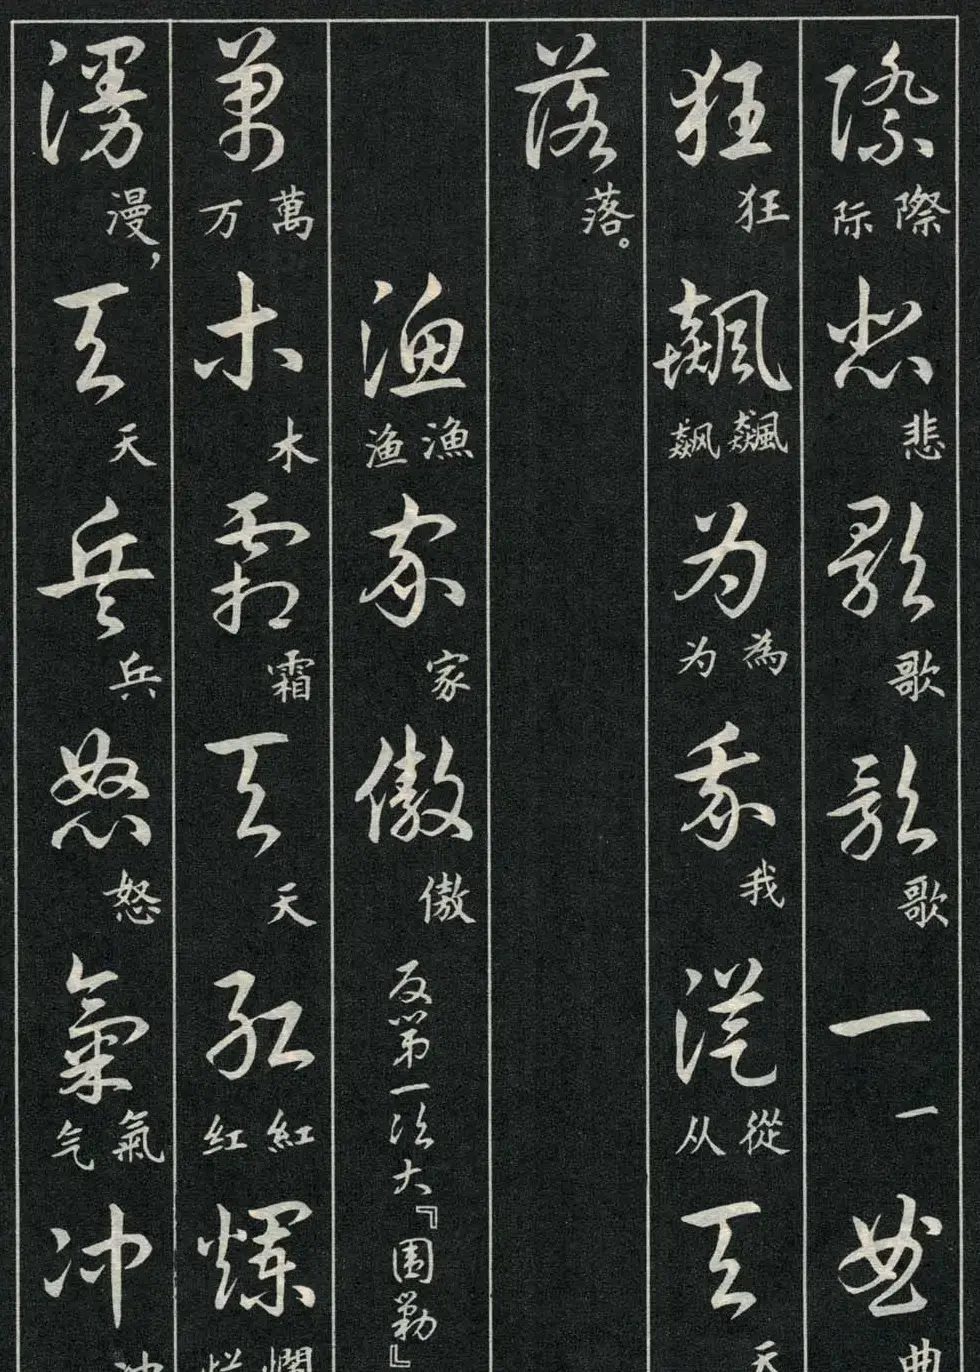 際 際 际 悲 悲 歌 歌 歌 歌 一 一 曲 曲
狂 狂 飆 飆 飙 为 為 为 我 我 從 從 从 天 天
落 落。
漁 漁 渔 家 家 傲 傲 反第一次大『围剿』
萬 萬 万 木 木 霜 霜 天 天 紅 紅 红 爛 爛 烂
漫 漫， 天 天 兵 兵 怒 怒 氣 氣 气 冲 冲